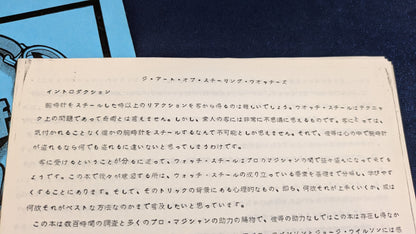 ジ・アート・オブ・スチーリング・ウォッチーズ
イントロダクション
腕時計をスチールした時以上のリアクションを客から得るのは難しいでしょう。ウォッチ・スチールはテクニック上の問題であって奇術とは言えません。しかし、素人の客には非常に不思議に思えるものです。客にとっては、気付かれることなく誰かの腕時計をスチールするなんて不可能としか思えません。それで、彼等は心の中で腕時計が盗れるなら何でも盗れるに違いないと思ってしまうわけです。
客に受けるということが分るに従って、ウォッチ・スチールはプロのマジシャンの間で益々盛んになって来てるようです。この本で我々が意図する所は、ウォッチ・スチールの成り立っている要素を基礎まで分解し、学びやすくすることにあります。そして、そのトリックの背景にある心理的なもの、即ち、何故それが上手くいくか、或は何故それがベストな方法なのかまで言及したいと思っています。
この本は数百時間の調査と多くのプロ・マジシャンの助力の賜物で、彼等の助力なしではこの本は存在し得なか